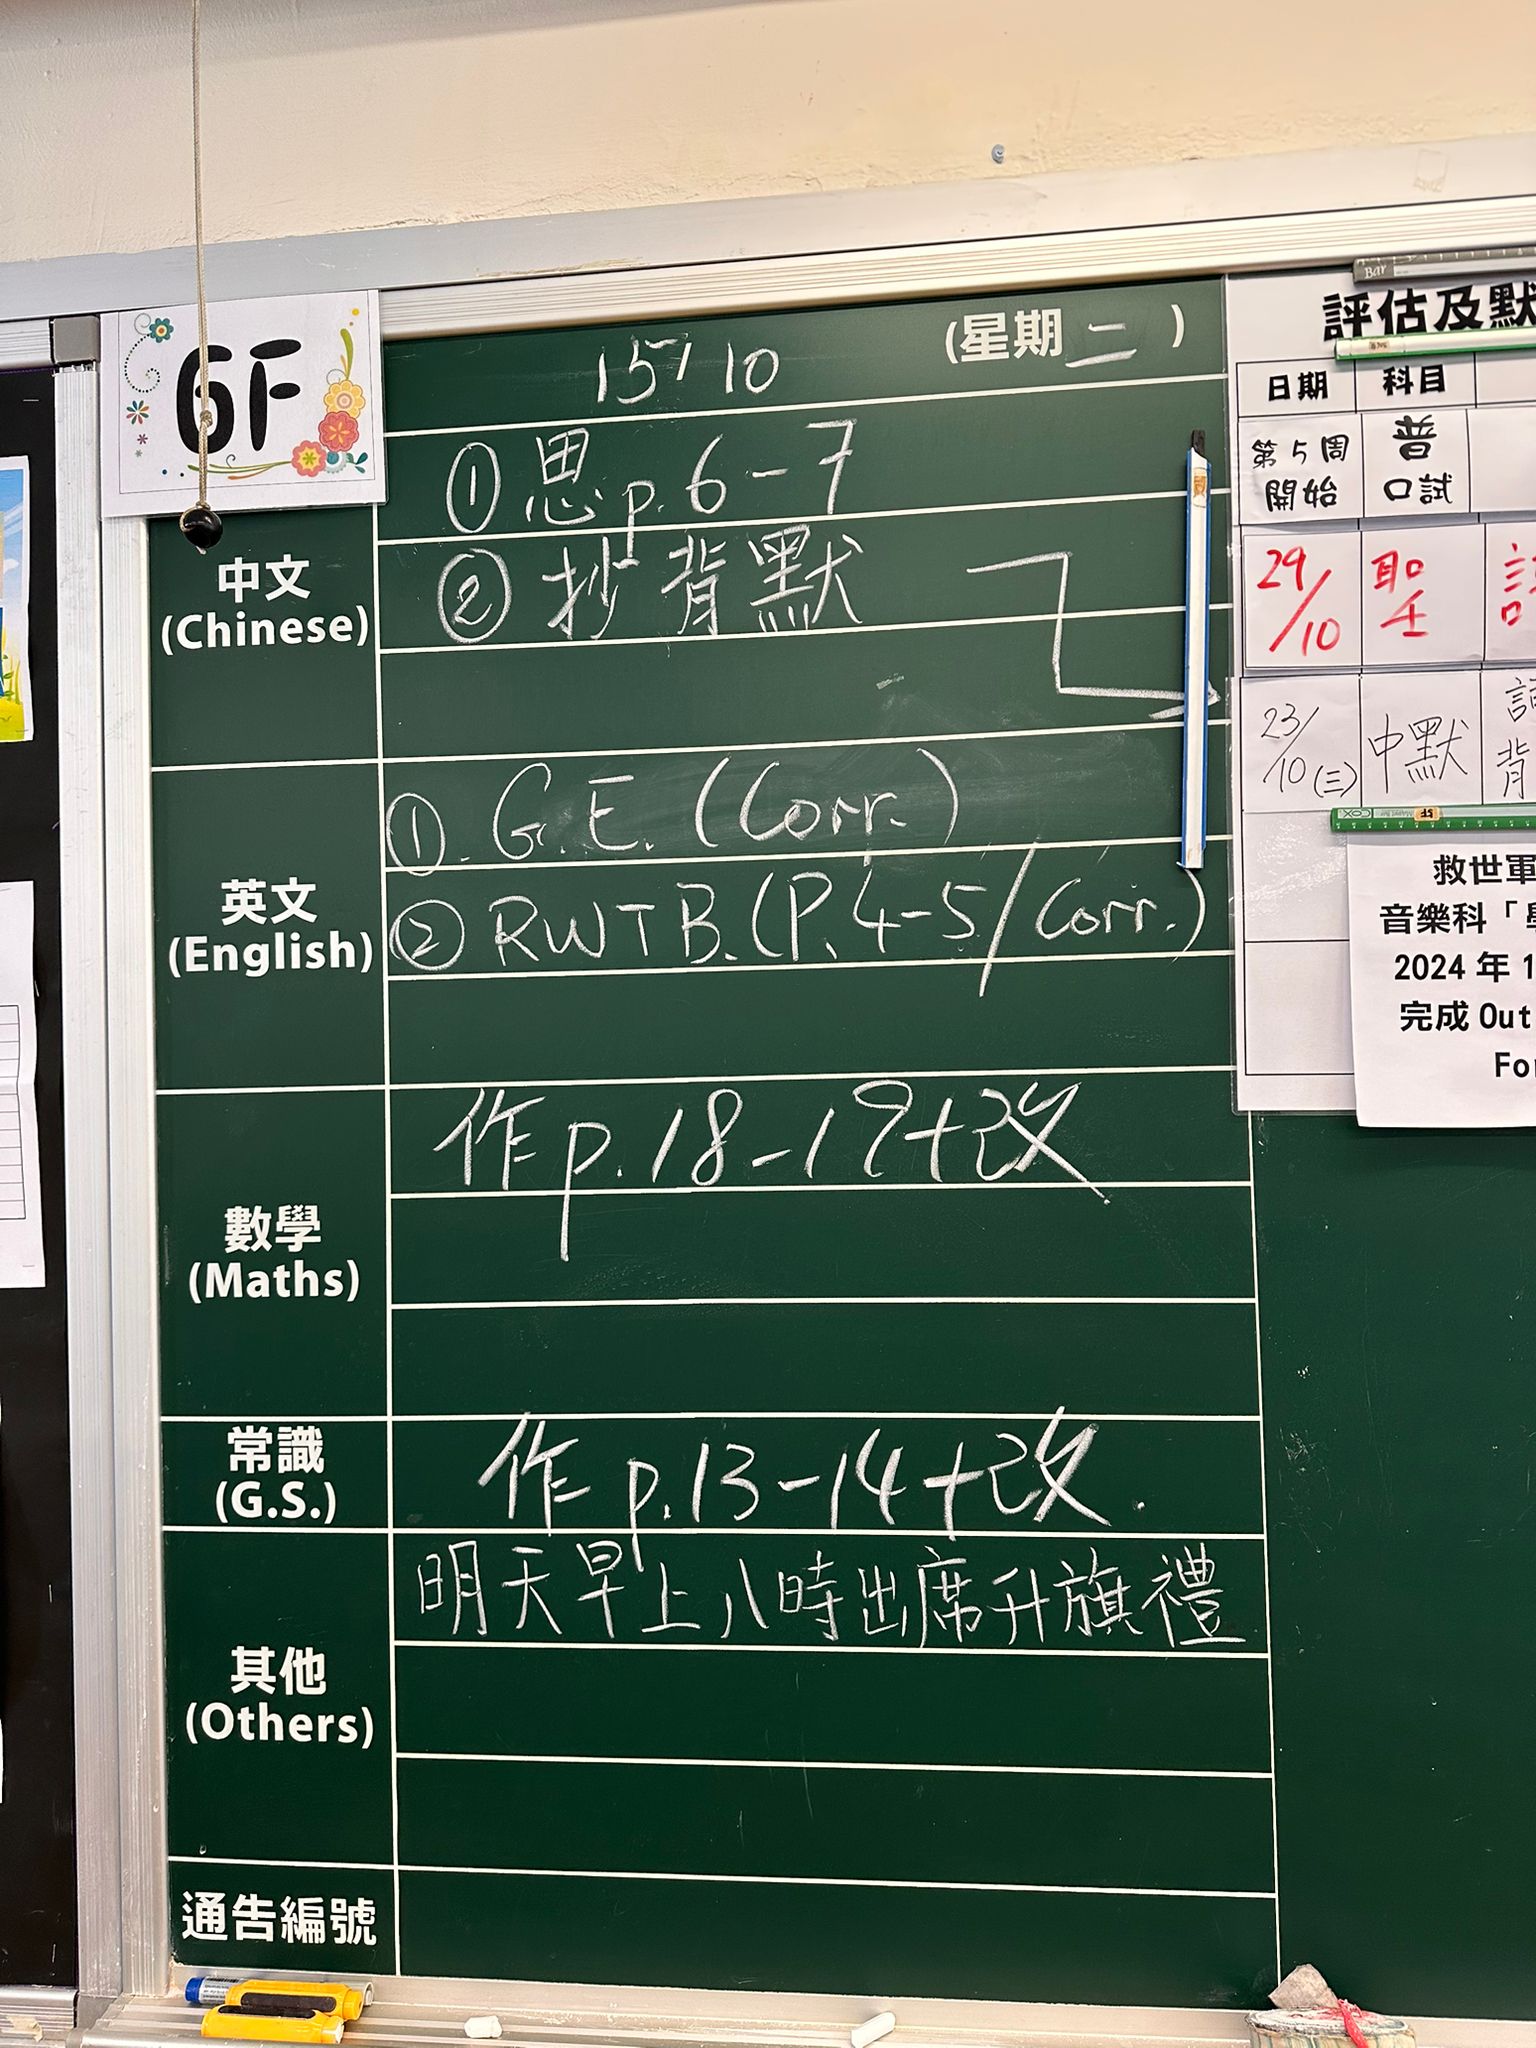 6F
15/10
(星期二)
中文
(Chinese)
① 思 p.6-7
② 抄背默
英文
(English)
①. G.E. (Corr.)
② RWTB. (P.4-5/Corr.)
數學
(Maths)
作 p.18-19+改
常識
(G.S.)
作 p.13-14+改.
其他
(Others)
明天早上八時出席升旗禮
通告編號
Bar
評估及默
日期 科目
第5周開始 普口試
29/10 聖
23/10(三) 中默
背
COX
救世軍
音樂科「
2024 年 1
完成 Out
For